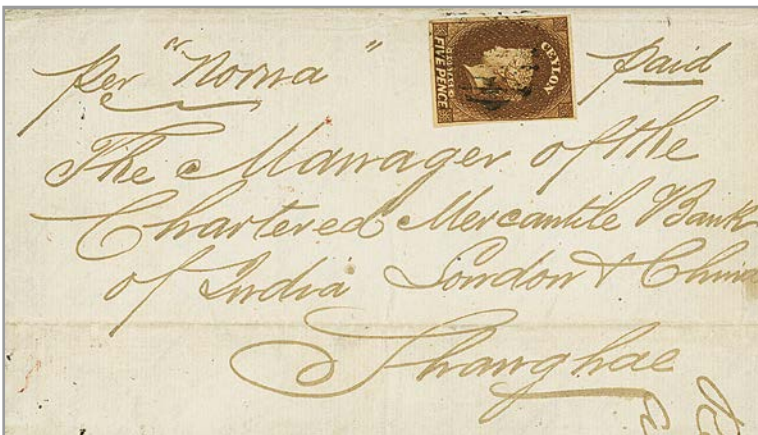 per "Norna" paid
CEYLON
POSTAGE
FIVE PENCE
The Manager of the
Chartered Mercantile Bank
of India London & China
Shanghae